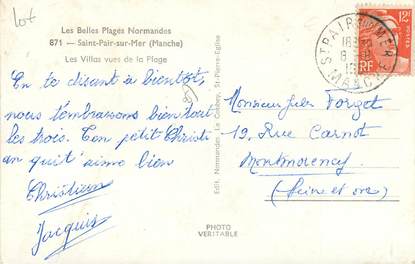 lot
Les Belles Plages Normandes
871 — Saint-Pair-sur-Mer (Manche)
Les Villas vues de la Plage
12F
POSTES
RF
ST PAIR SUR MER
MANCHE
En te disant à bientôt,
nous t'embrassons bien fort
les trois. Ton petit Christi
an qui t'aime bien
Christian
Jacquis
Edit. Normandes Le Goubey, St-Pierre-Eglise
Monsieur Jules Forget
19 Rue Carnot
Montmorency
(Seine et Oise)
PHOTO
VERITABLE